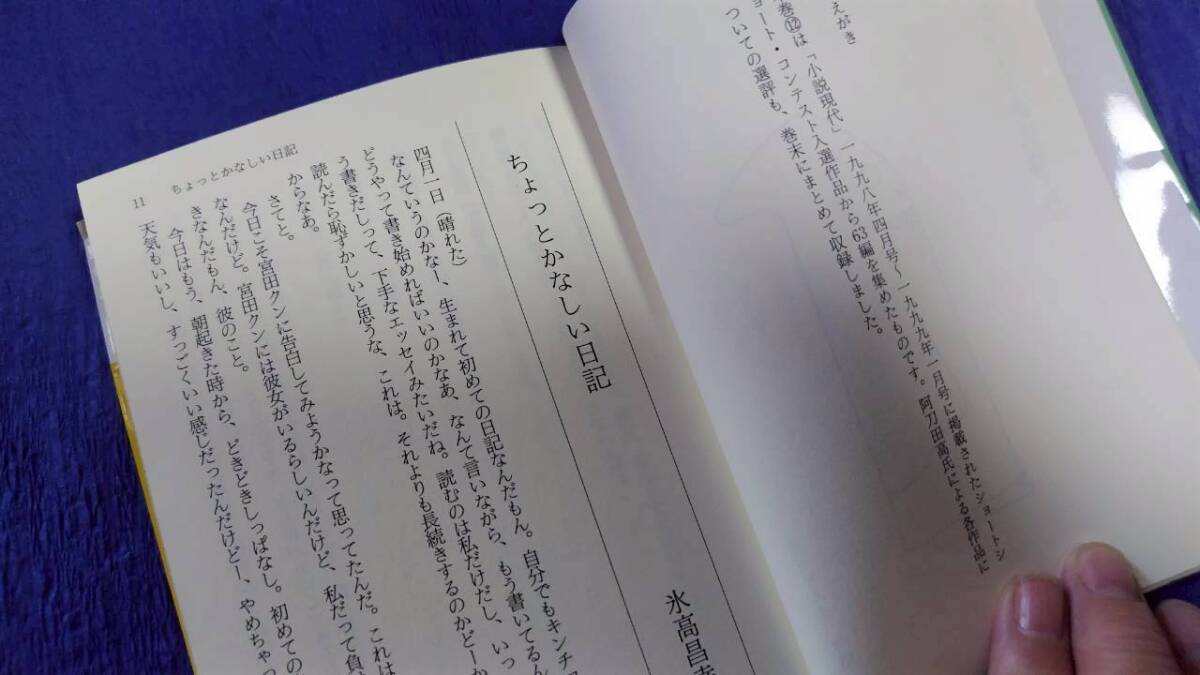 えがき
巻⑫は「小説現代」一九九八年四月号〜一九九九年一月号に掲載されたショートシ
ョート・コンテスト入選作品から63編を集めたものです。阿刀田高氏による各作品に
ついての選評も、巻末にまとめて収録しました。
ちょっとかなしい日記
氷高昌幸
四月一日（晴れた）
なんていうのかなー、生まれて初めての日記なんだもん。自分でもキンチ
どうやって書き始めればいいのかなあ、なんて言いながら、もう書いてるん
う書きだしって、下手なエッセイみたいだね。読むのは私だけだし、いっ
読んだら恥ずかしいと思うな、これは。それよりも長続きするのかどーか
からなあ。
さてと。
今日こそ宮田クンに告白してみようかなって思ってたんだ。これは
なんだけど。宮田クンには彼女がいるらしいんだけど、私だって負
きなんだもん、彼のこと。
今日はもう、朝起きた時から、どきどきしっぱなし。初めての
天気もいいし、すっごくいい感じだったんだけどー、やめちゃっ
11 ちょっとかなしい日記